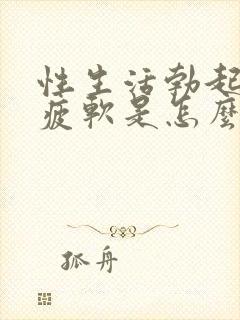 性生活勃起
疲軟是怎麼
孤舟